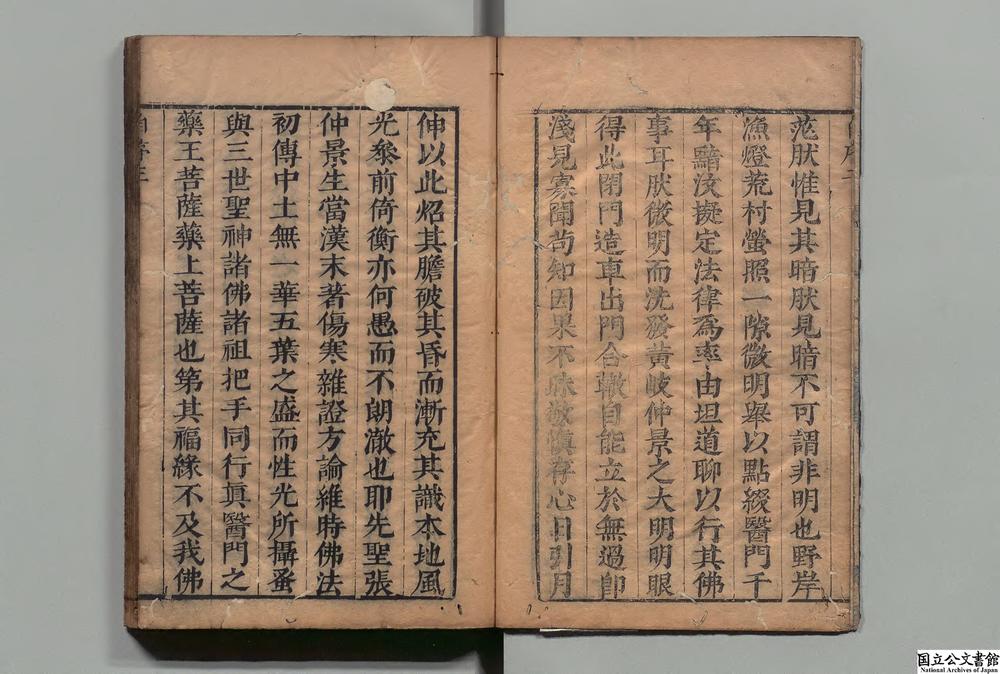 茫肰惟見其暗肰見暗不可謂非明也野岸
漁燈荒村螢照一隙微明舉以點綴醫門千
年黯汶擬定法律爲率由坦道聊以行其佛
事耳肰微明而洗發黃岐仲景之大明明眼
得此閉門造車出門合轍自能立於無過卽
淺見寡聞苟知因果不昧敬慎存心日引月
伸以此炤其膽破其昏而漸充其識本地風
光叅前倚衡亦何愚而不朗澈也耶先聖張
仲景生當漢末著傷寒雜證方論維時佛法
初傳中土無一華五葉之盛而性光所攝蚤
與三世聖神諸佛諸祖把手同行眞醫門之
藥王菩薩藥上菩薩也第其福緣不及我佛
自序三
国立公文書館
National Archives of Japan